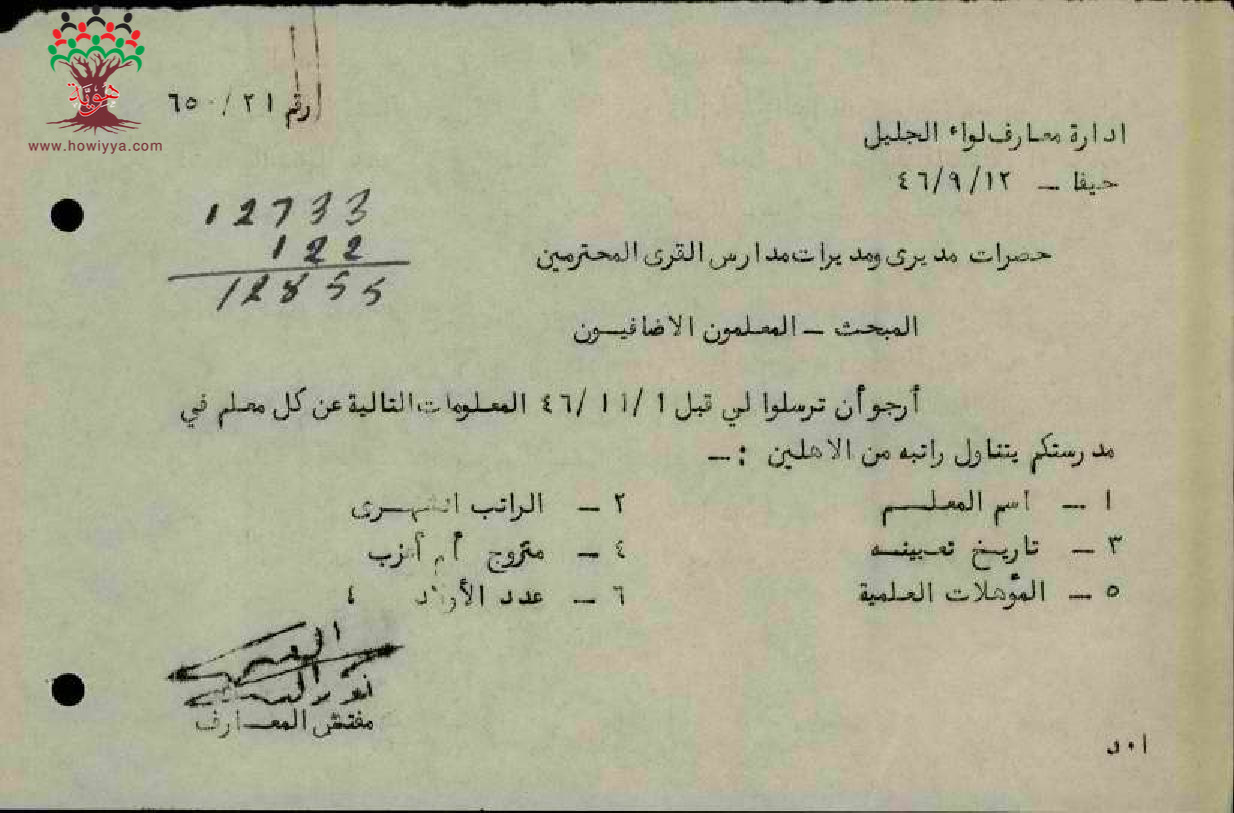 هوية
www.howiyya.com
رقم ٢١/٦٥٠
ادارة معارف لواء الجليل
حيفا – ٤٦/٩/١٢
12733
122
12855
حضرات مديرى ومديرات مدارس القرى المحترمين
المبحث – المعلمون الاضافيون
أرجو أن ترسلوا لي قبل ١/ ١١/ ٤٦ المعلومات التالية عن كل معلم في
مدرستكم يتناول راتبه من الاهلين : –
١ – اسم المعلم ٢ – الراتب الشهرى
٣ – تاريخ تعيينه ٤ – متزوج أم أعزب
٥ – المؤهلات العلمية ٦ – عدد الأولاد ٤
مفتش المعارف